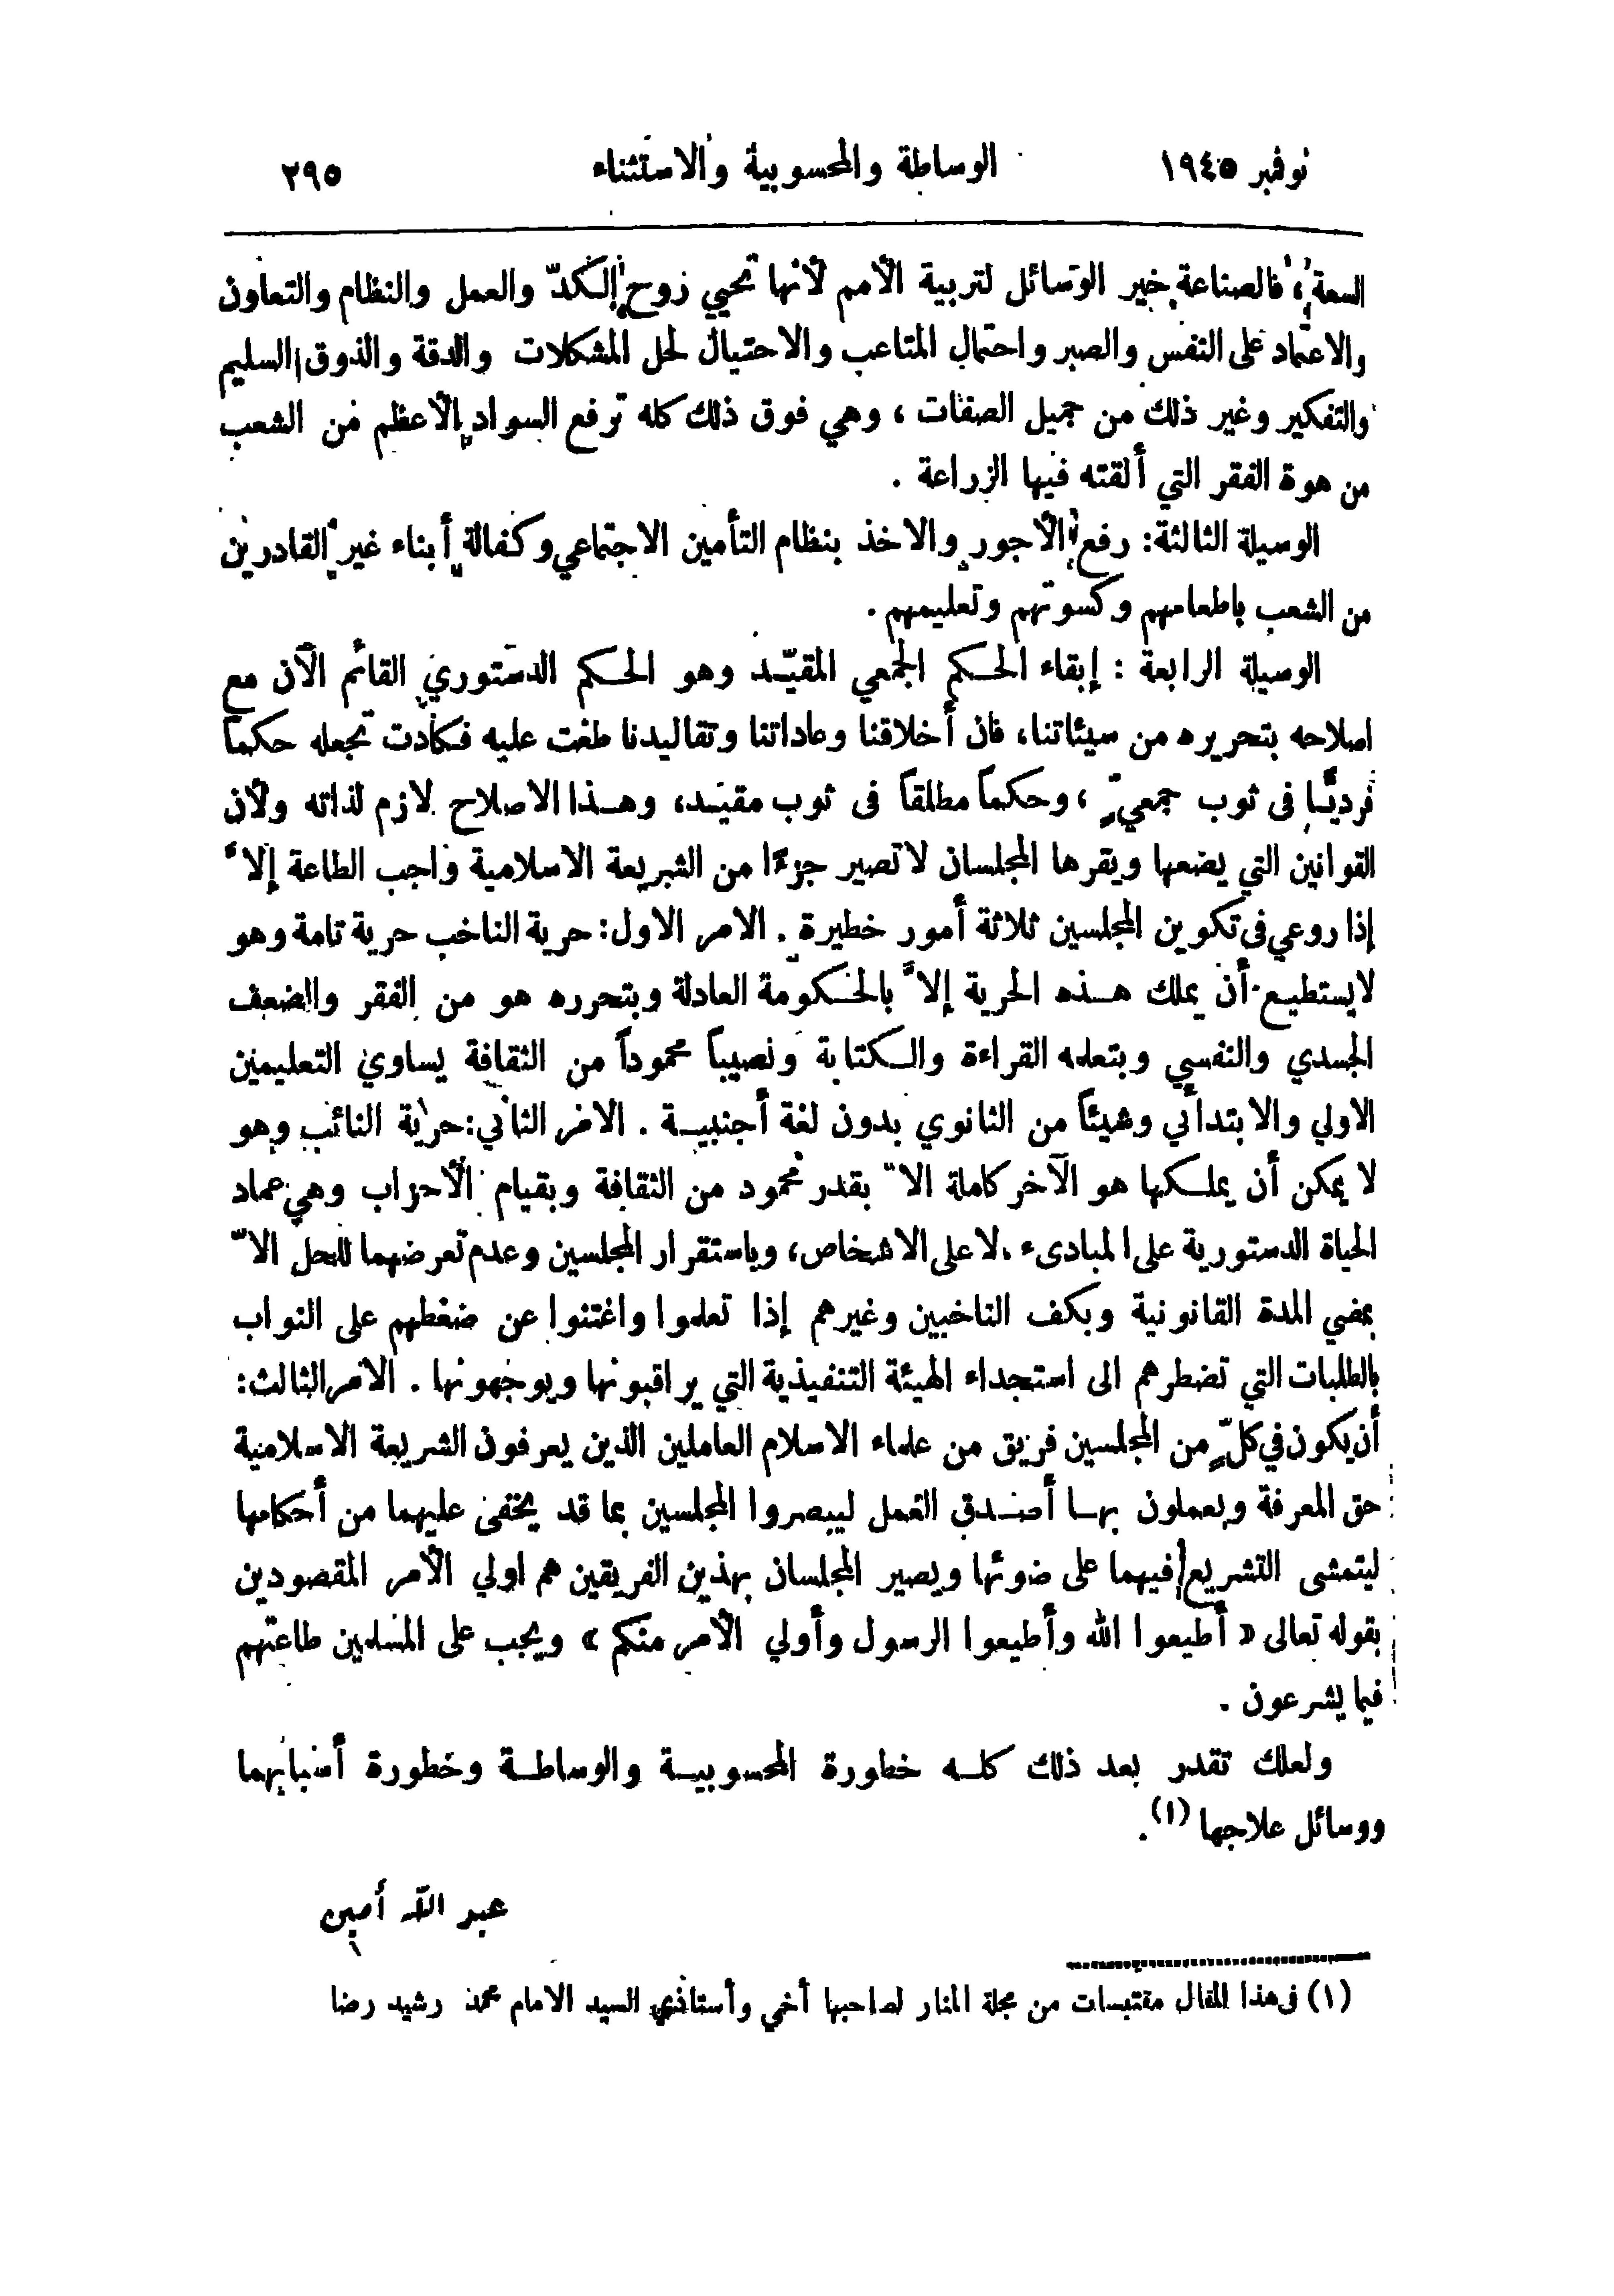 نوفمبر ١٩٤٥ الوساطة والمحسوبية والاستثناء ٢٩٥
السعة، فالصناعة خير الوسائل لتربية الأمم لأنها تحيي روح الكدّ والعمل والنظام والتعاون
والاعتماد على النفس والصبر واحتمال المتاعب والاحتيال لحل المشكلات والدقة والذوق السليم
والتفكير وغير ذلك من جميل الصفات ، وهي فوق ذلك كله ترفع السواد الأعظم من الشعب
من هوة الفقر التي ألقته فيها الزراعة .
الوسيلة الثالثة: رفع الأجور والاخذ بنظام التأمين الاجتماعي وكفالة أبناء غير القادرين
من الشعب باطعامهم وكسوتهم وتعليمهم .
الوسيلة الرابعة : إبقاء الحكم الجمعي المقيّد وهو الحكم الدستوري القائم الآن مع
اصلاحه بتحريره من سيئاتنا، فان أخلاقنا وعاداتنا وتقاليدنا طغت عليه فكادت تجعله حكماً
فرديًّا فى ثوب جمعيّ ، وحكماً مطلقاً فى ثوب مقيد، وهذا الاصلاح لازم لذاته ولأن
القوانين التي يضعها ويقرها المجلسان لا تصير جزءًا من الشريعة الاسلامية واجب الطاعة إلاّ
إذا روعي فى تكوين المجلسين ثلاثة أمور خطيرة . الامر الاول: حرية الناخب حرية تامة وهو
لا يستطيع أن يملك هذه الحرية إلاّ بالحكومة العادلة وبتحرره هو من الفقر والضعف
الجسدي والنفسي وبتعلمه القراءة والكتابة ونصيباً محموداً من الثقافة يساوي التعليمين
الاولي والابتدائي وشيئاً من الثانوي بدون لغة أجنبية . الامر الثاني: حرية النائب وهو
لا يمكن أن يملكها هو الآخر كاملة الاّ بقدر محمود من الثقافة وبقيام الأحزاب وهي عماد
الحياة الدستورية على المبادىء لا على الاشخاص، وباستقرار المجلسين وعدم تعرضهما للحل الاّ
بمضي المدة القانونية وبكف الناخبين وغيرهم إذا تعلموا واغتنوا عن ضغطهم على النواب
بالطلبات التي تضطرهم الى استجداء الهيئة التنفيذية التي يراقبونها ويوجهونها . الامر الثالث:
أن يكون في كلّ من المجلسين فريق من علماء الاسلام العاملين الذين يعرفون الشريعة الاسلامية
حق المعرفة ويعملون بها أصدق العمل ليبصروا المجلسين بما قد يخفى عليهما من أحكامها
ليتمشى التشريع فيهما على ضوئها ويصير المجلسان بهذين الفريقين هم اولي الأمر المقصودين
بقوله تعالى « أطيعوا الله وأطيعوا الرسول وأولي الأمر منكم » ويجب على المسلمين طاعتهم
فيما يشرعون .
ولعلك تقدر بعد ذلك كله خطورة المحسوبية والوساطة وخطورة أسبابهما
ووسائل علاجها (١).
عبد الله أمين
(١) فى هذا المقال مقتبسات من مجلة المنار لصاحبها أخي وأستاذي السيد الامام محمد رشيد رضا